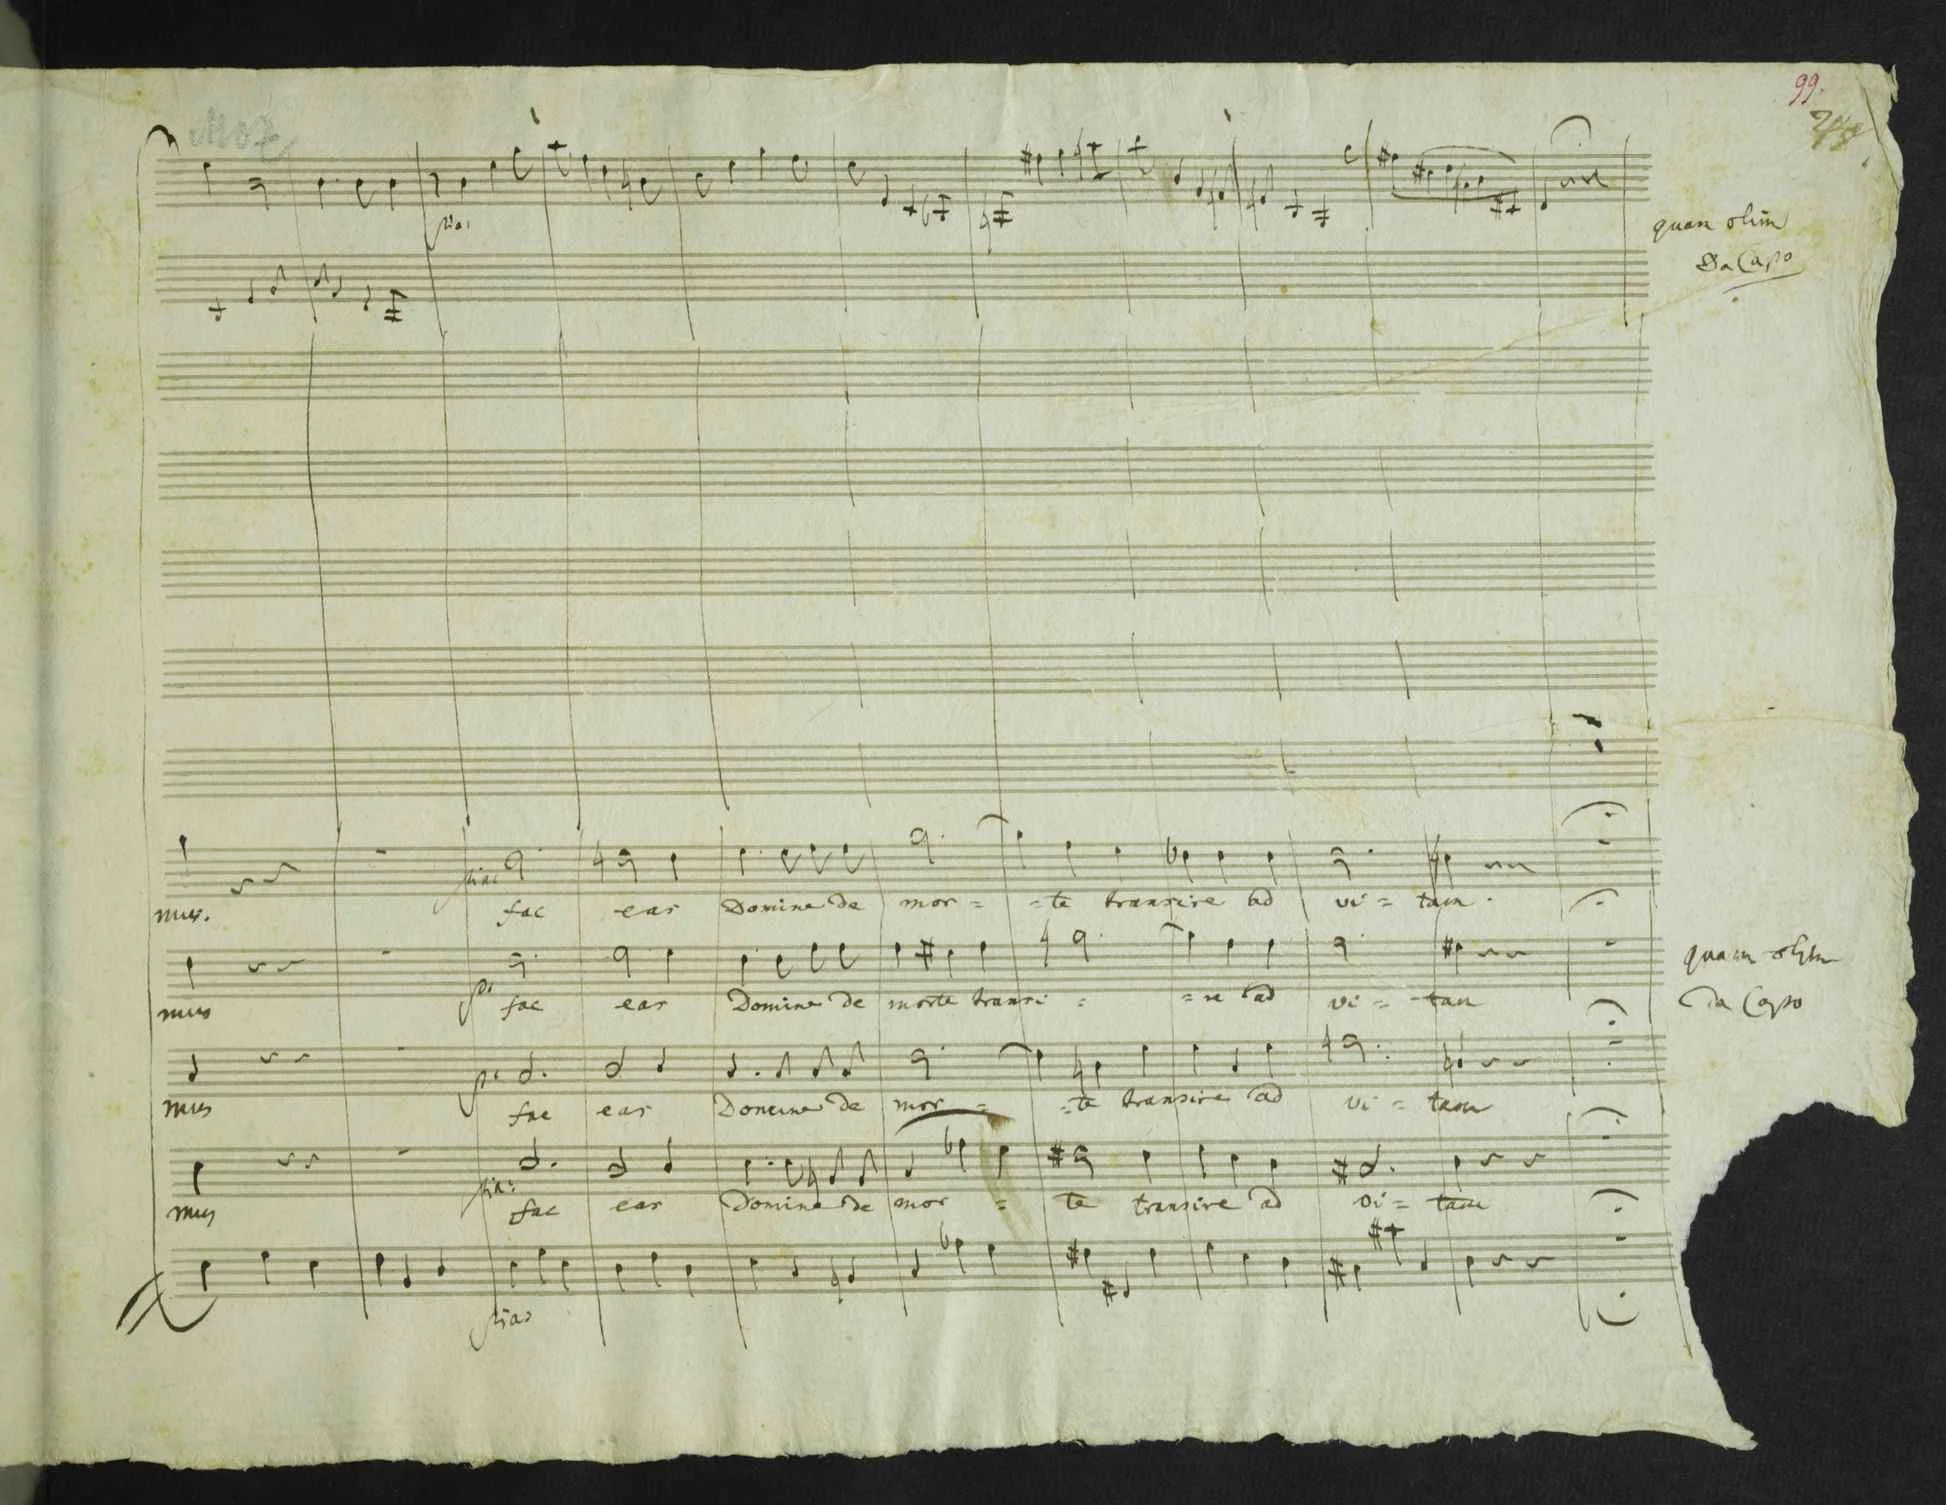 99.
Moz
pia:
quam olim
Da Capo
pia:
mus. fac eas Domine de mor = = te transire ad vi = tam.
p:
mus fac eas Domine de morte transi = = re ad vi = tam
quam olim
Da Capo
p:
mus fac eas Domine de mor = = te transire ad vi = tam
pia:
mus fac eas Domine de mor = te transire ad vi = tam
pia: